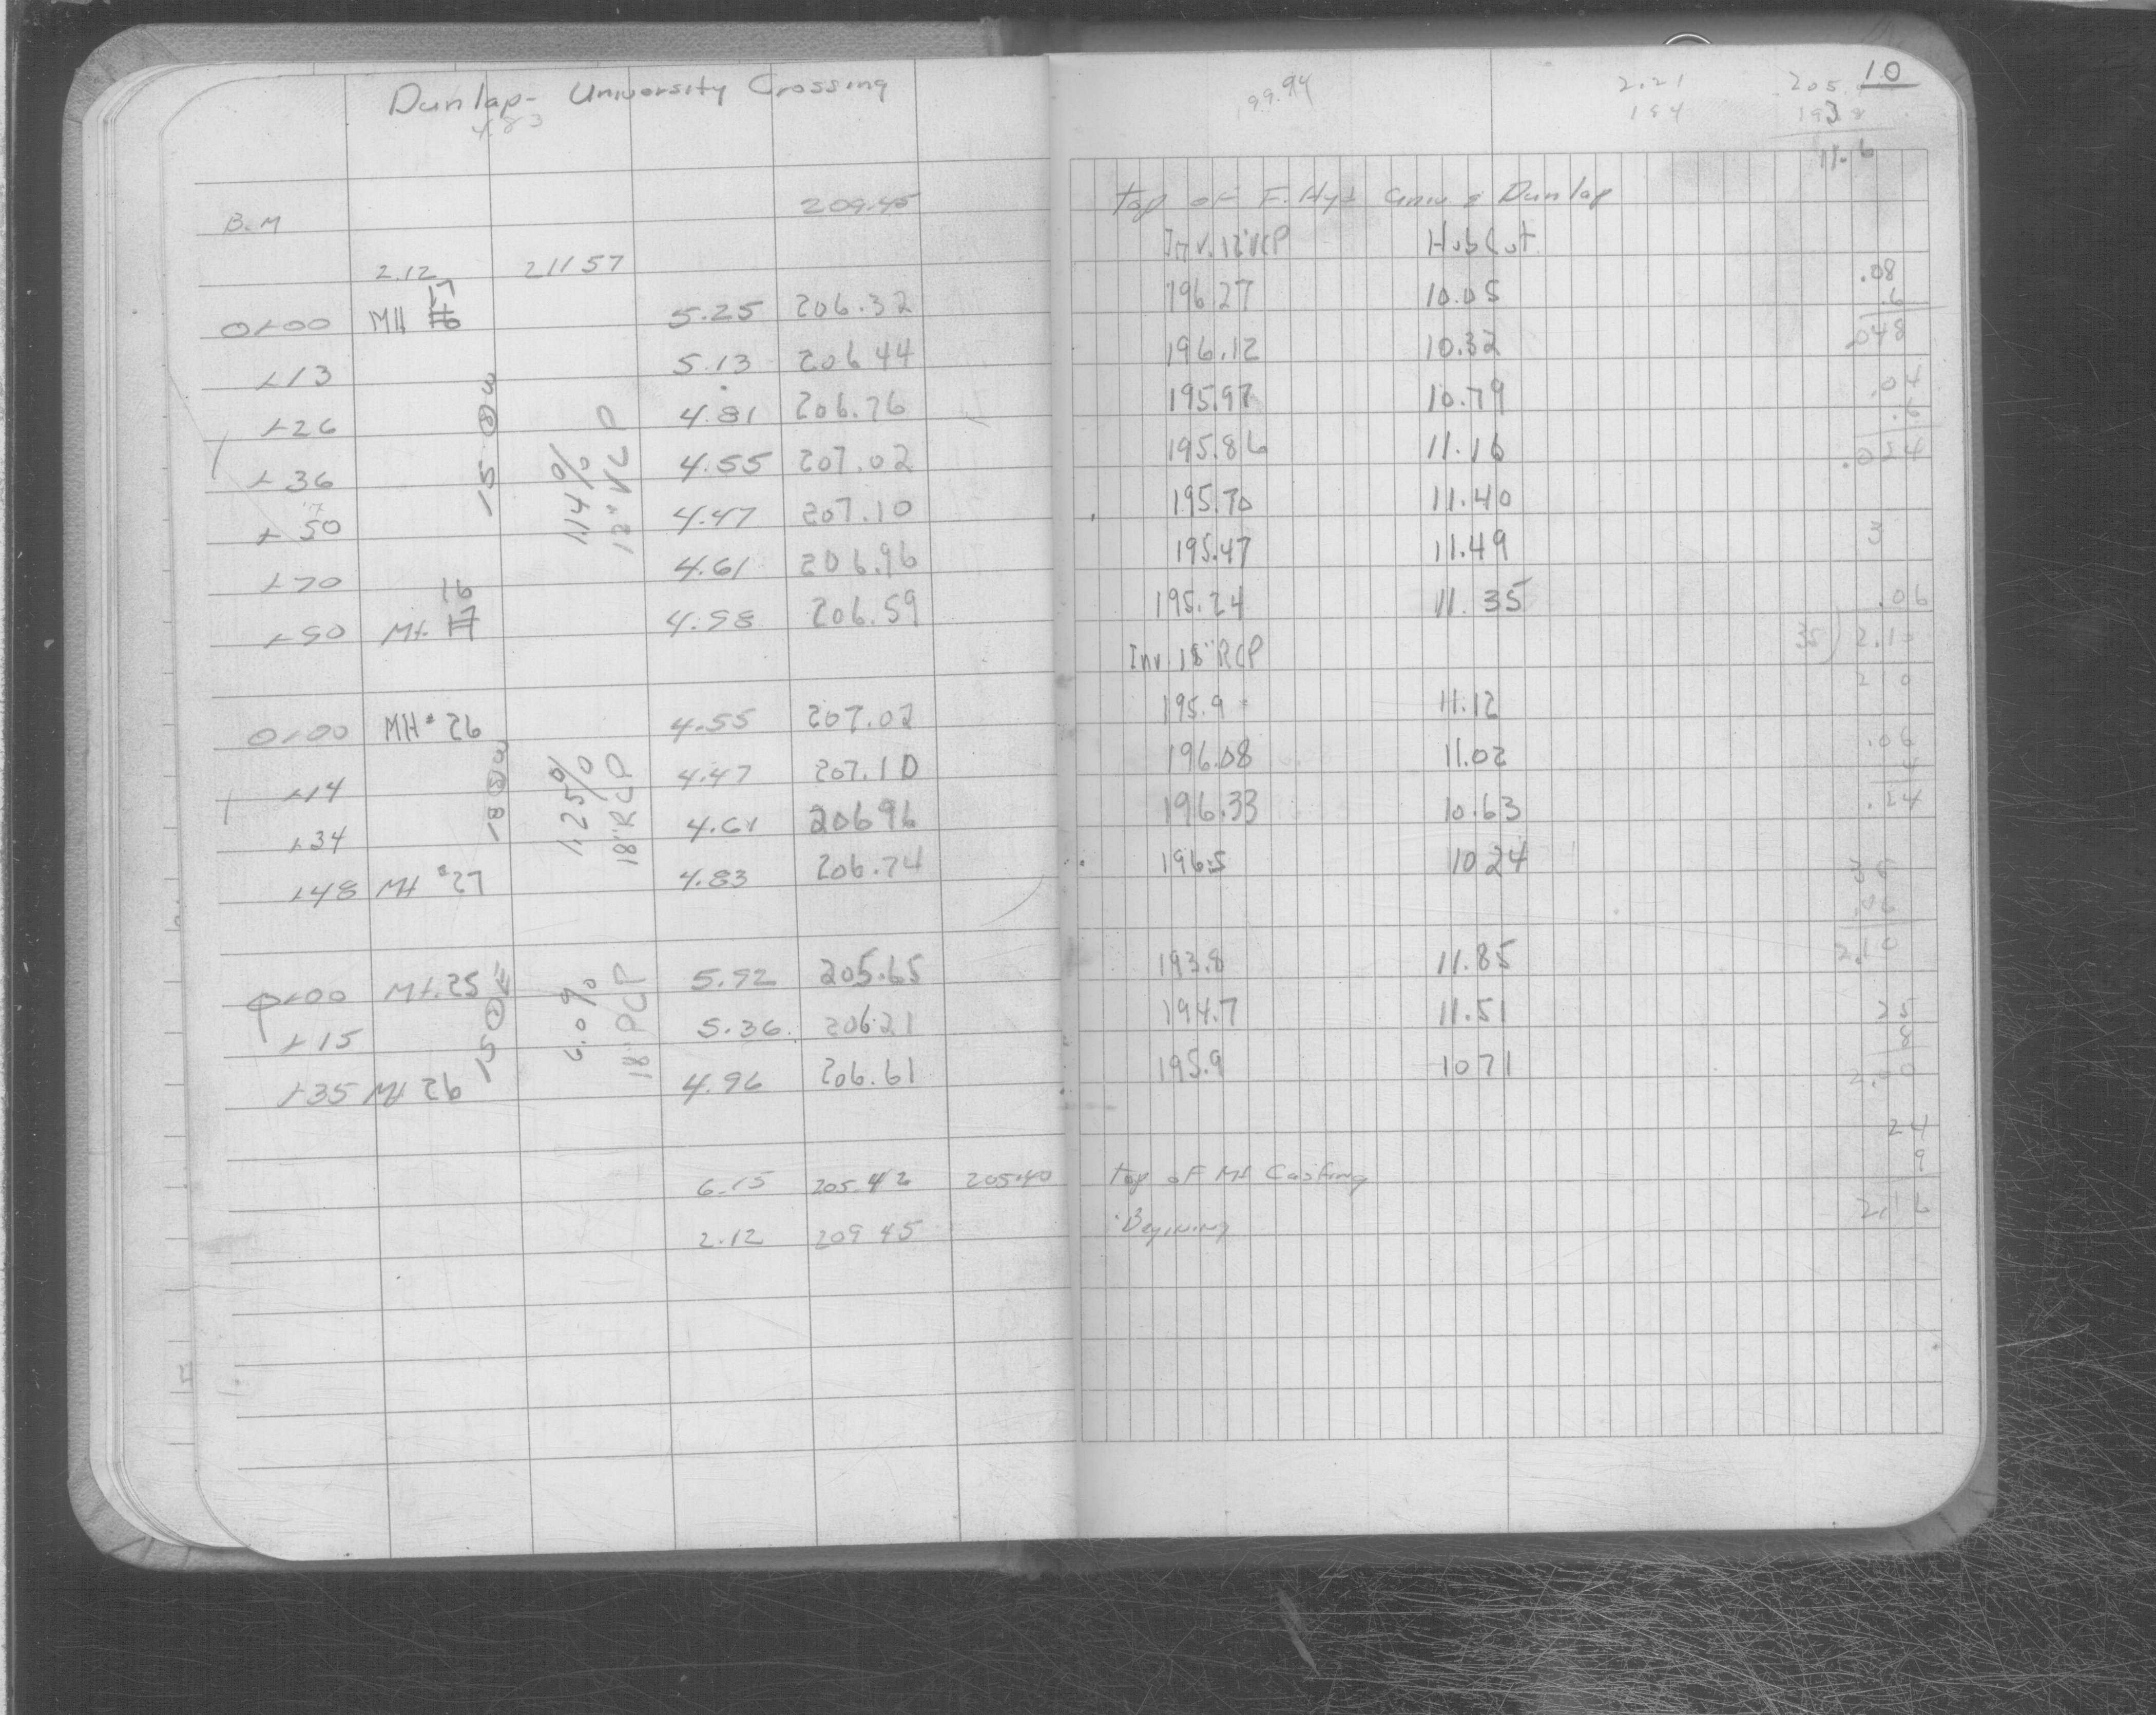 Dunlap- University Crossing
4.83
B.M 209.45
2.12 211 57
0+00 MH 17 5.25 206.32
+13 5.13 206 44
+26 4.81 206.76
+36 4.55 207.02
+50 4.47 207.10
+70 4.61 206.96
+90 MH. 16 4.98 206.59
15 8 3
1.14%
12" VCP
0+00 MH# 26 4.55 207.02
+14 4.47 207.10
+34 4.61 20696
+48 MH #27 4.83 206.74
1.25%
18" RCP
0+00 MH.25 5.92 205.65
+15 5.36 206.21
+35 MH 26 4.96 206.61
6.0%
6.15 205.42 205.40
2.12 209 45
10
99.94
2.21
184
205.
193.8
11.6
Top of F. Hyd Univ & Dunlap
Inv. 12" VCP Hub Cut
196.27 10.05
196.12 10.32
195.97 10.79
195.86 11.16
195.70 11.40
195.47 11.49
195.24 11.35
Inv. 18" RCP
195.9 11.12
196.08 11.02
196.33 10.63
196.5 10 24
193.8 11.85
194.7 11.51
195.9 10 71
Top of MH Casting
Begining
.08
.6
.048
.04
.6
.024
3
.06
35 2.10
2 10
.06
4
.24
35
.06
2.10
25
8
2.00
24
9
2.16